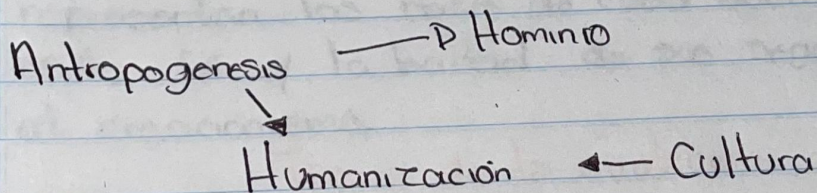 Antropogenesis → Hominio
Humanización ← Cultura